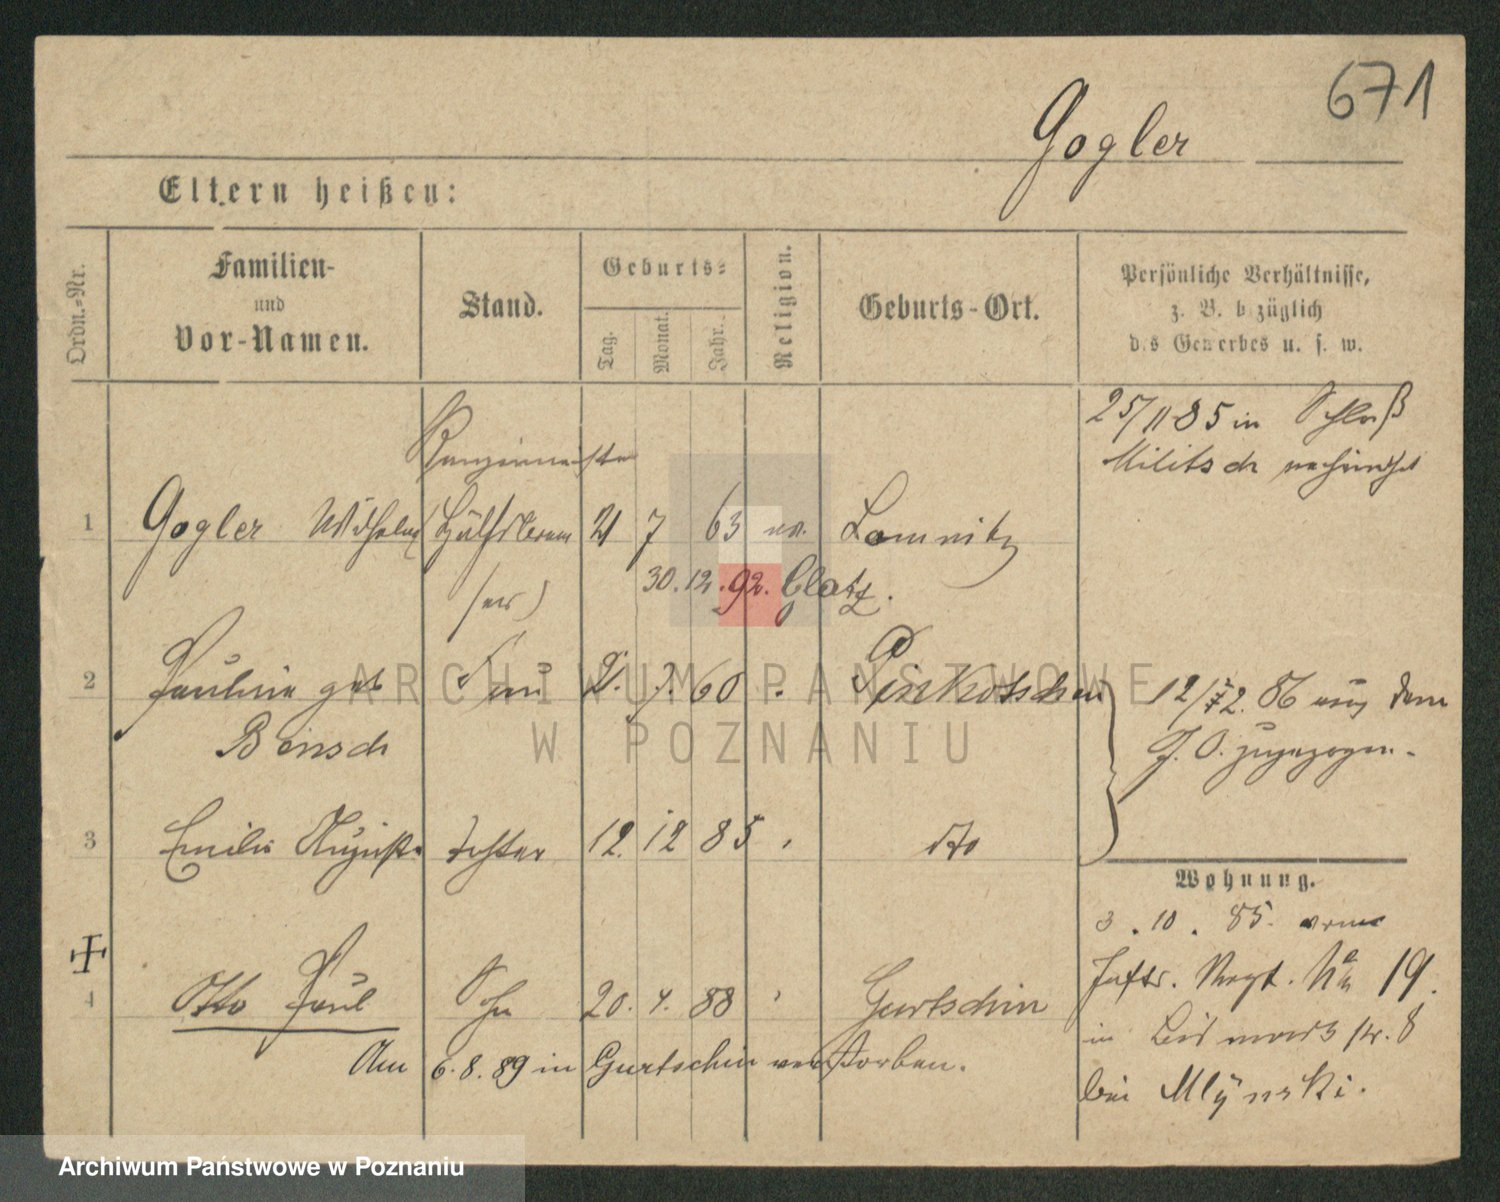 671
Gogler
Eltern heißen:
Ordn.=Nr.
Familien-
und
Vor-Namen.
Stand.
Geburts=
Tag.
Monat.
Jahr.
Religion.
Geburts-Ort.
Persönliche Verhältnisse,
z. B. bezüglich
des Gewerbes u. s. w.
25/11 85 in Schloß
Militsch
1 Gogler Wilhelm Hülfs 21 7 63 ev. Lomnitz
30.12.92. Glatz.
2 Pauline geb Frau 2. 7. 60 Pinkotschen
Bensch
12/ 2. 86 aus dem
J. O. zugezogen.
3 Emilie August. Tochter 12. 12 85 dto
Wohnung.
3. 10. 85. vom
Inftr. Regt. No 19.
4 Otto Paul Sohn 20. 4. 88 Gurtschin
in Bismarckstr. 8
Am 6. 8. 89 in Gurtschin verstorben.
bei Mlynski.
ARCHIWUM PAŃSTWOWE
W POZNANIU
Archiwum Państwowe w Poznaniu